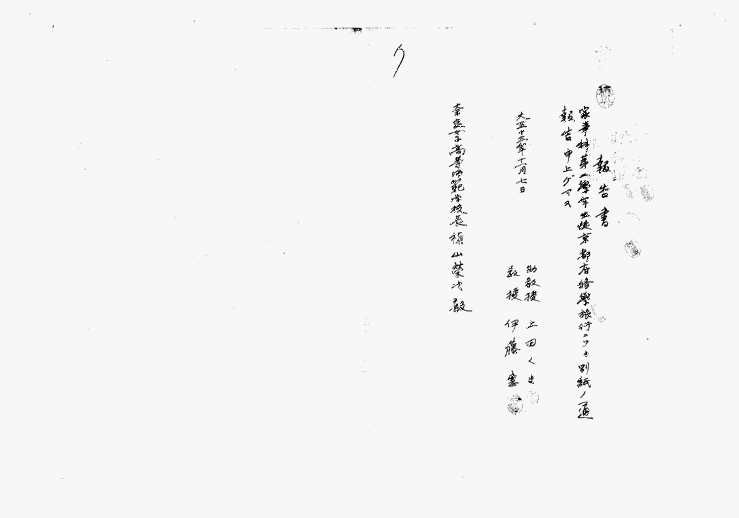 報告書
家事科第一學年生徒京都府修學旅行ニツキ別紙ノ通
報告申上ゲマス
大正十三年十一月七日
助教授 上田くま
教授 伊藤
奈良女子高等師範学校長槇山榮次殿